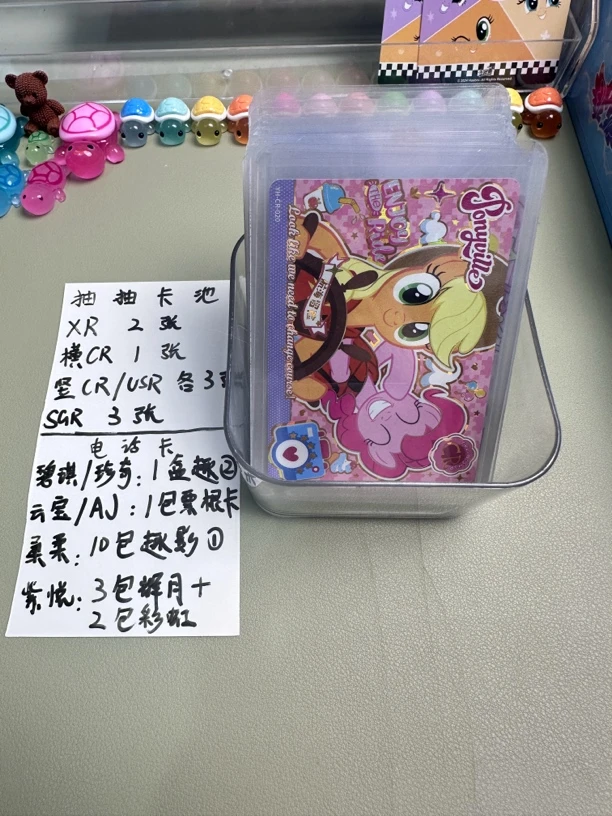 抽抽卡池
XR 2张
横CR 1张
竖CR/USR 各3张
SGR 3张
电话卡
碧琪/珍奇：1盒趣②
云宝/AJ：1包票根卡
柔柔：10包趣影①
紫悦：3包辉月+
2包彩虹
YH-CR-020
Look like we need to change course!
ENJOY
THE
Ponyville